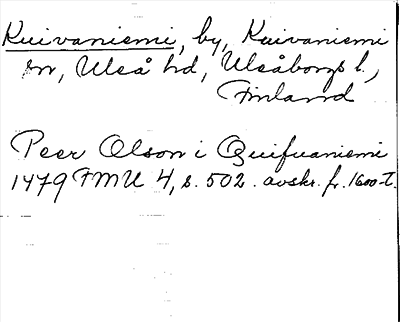 Kuivaniemi, by, Kuivaniemi
sn, Uleå hd, Uleåborgs l.,
Finland
Peer Olson i Quifuaniemi
1479 FMU 4, s. 502. avskr. fr. 1600-t.